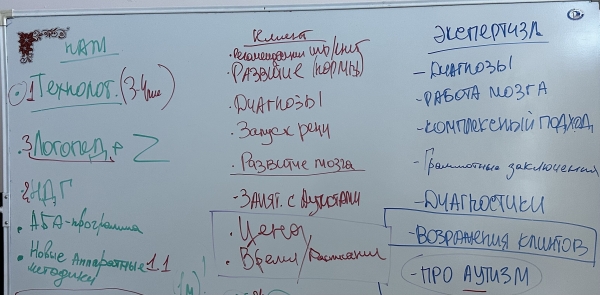 НАМ
1 Технолог. (3-4
3 Логопед +
2 НДГ
• АБА-программа
• Новые Аппаратные 1.1
методики
Клиент
• Рекомендации
• Развитие (нормы)
• Диагнозы
• Запуск речи
• Развитие мозга
- Занят. с Аутистами
• Цена
• Время / Расписания
Экспертизм
- Диагнозы
- Работа мозга
- Комплексный подход
- Грамотные заключения
- Диагностики
- Возражения клиентов
- Про Аутизм